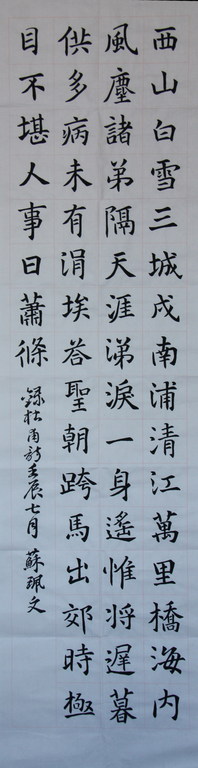 西山白雪三城戍南浦清江萬里橋海内
風塵諸弟隔天涯涕淚一身遙惟将遲暮
供多病未有涓埃荅聖朝跨馬出郊時極
目不堪人事日蕭條 錄杜甫詩壬辰七月 蘇珮文